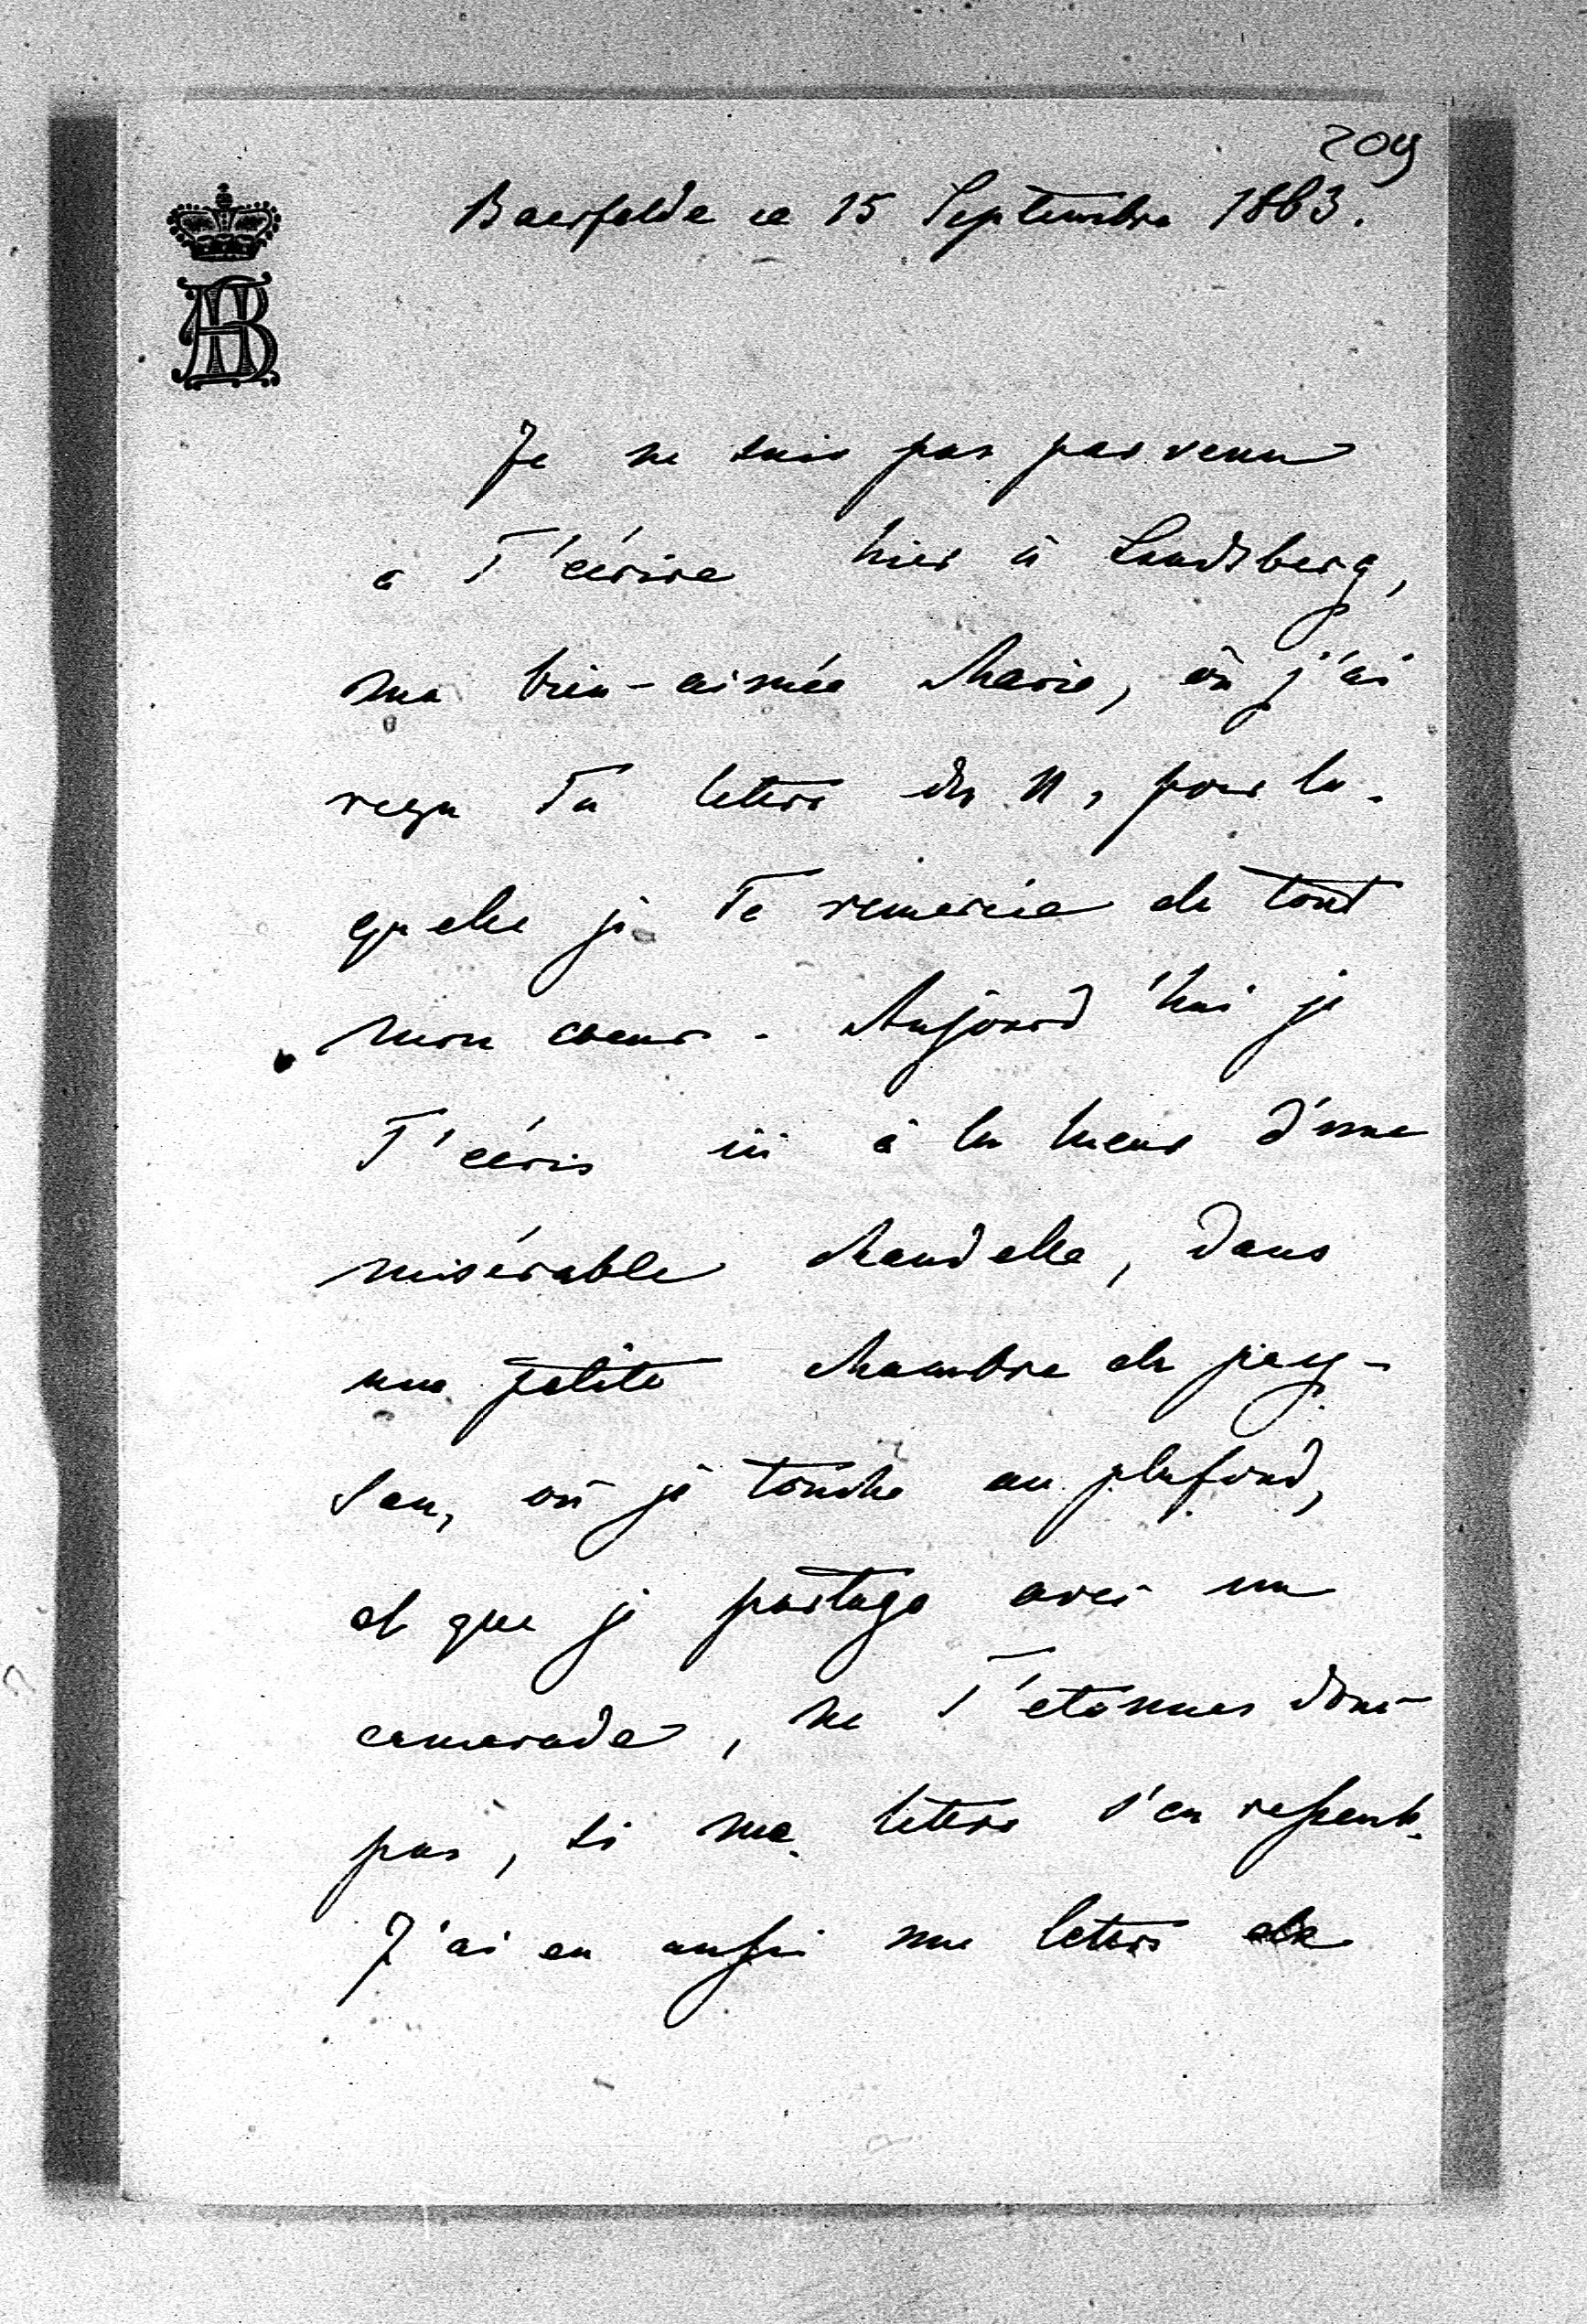 209
Baerfelde ce 15 Septembre 1863.
AB
Je ne suis pas parvenu
à T'écrire hier à Landsberg,
ma bien-aimée Marie, où j'ai
reçu Ta lettre du 11, pour la-
quelle je Te remercie de tout
mon coeur. Aujourd'hui je
T'écris ici à la lueur d'une
misérable chandelle, dans
une petite chambre de pay-
san, où je touche au plafond,
et que je partage avec un
camarade, ne T'etonnes donc
pas, si ma lettre s'en ressent.
J'ai eu aussi une lettre de